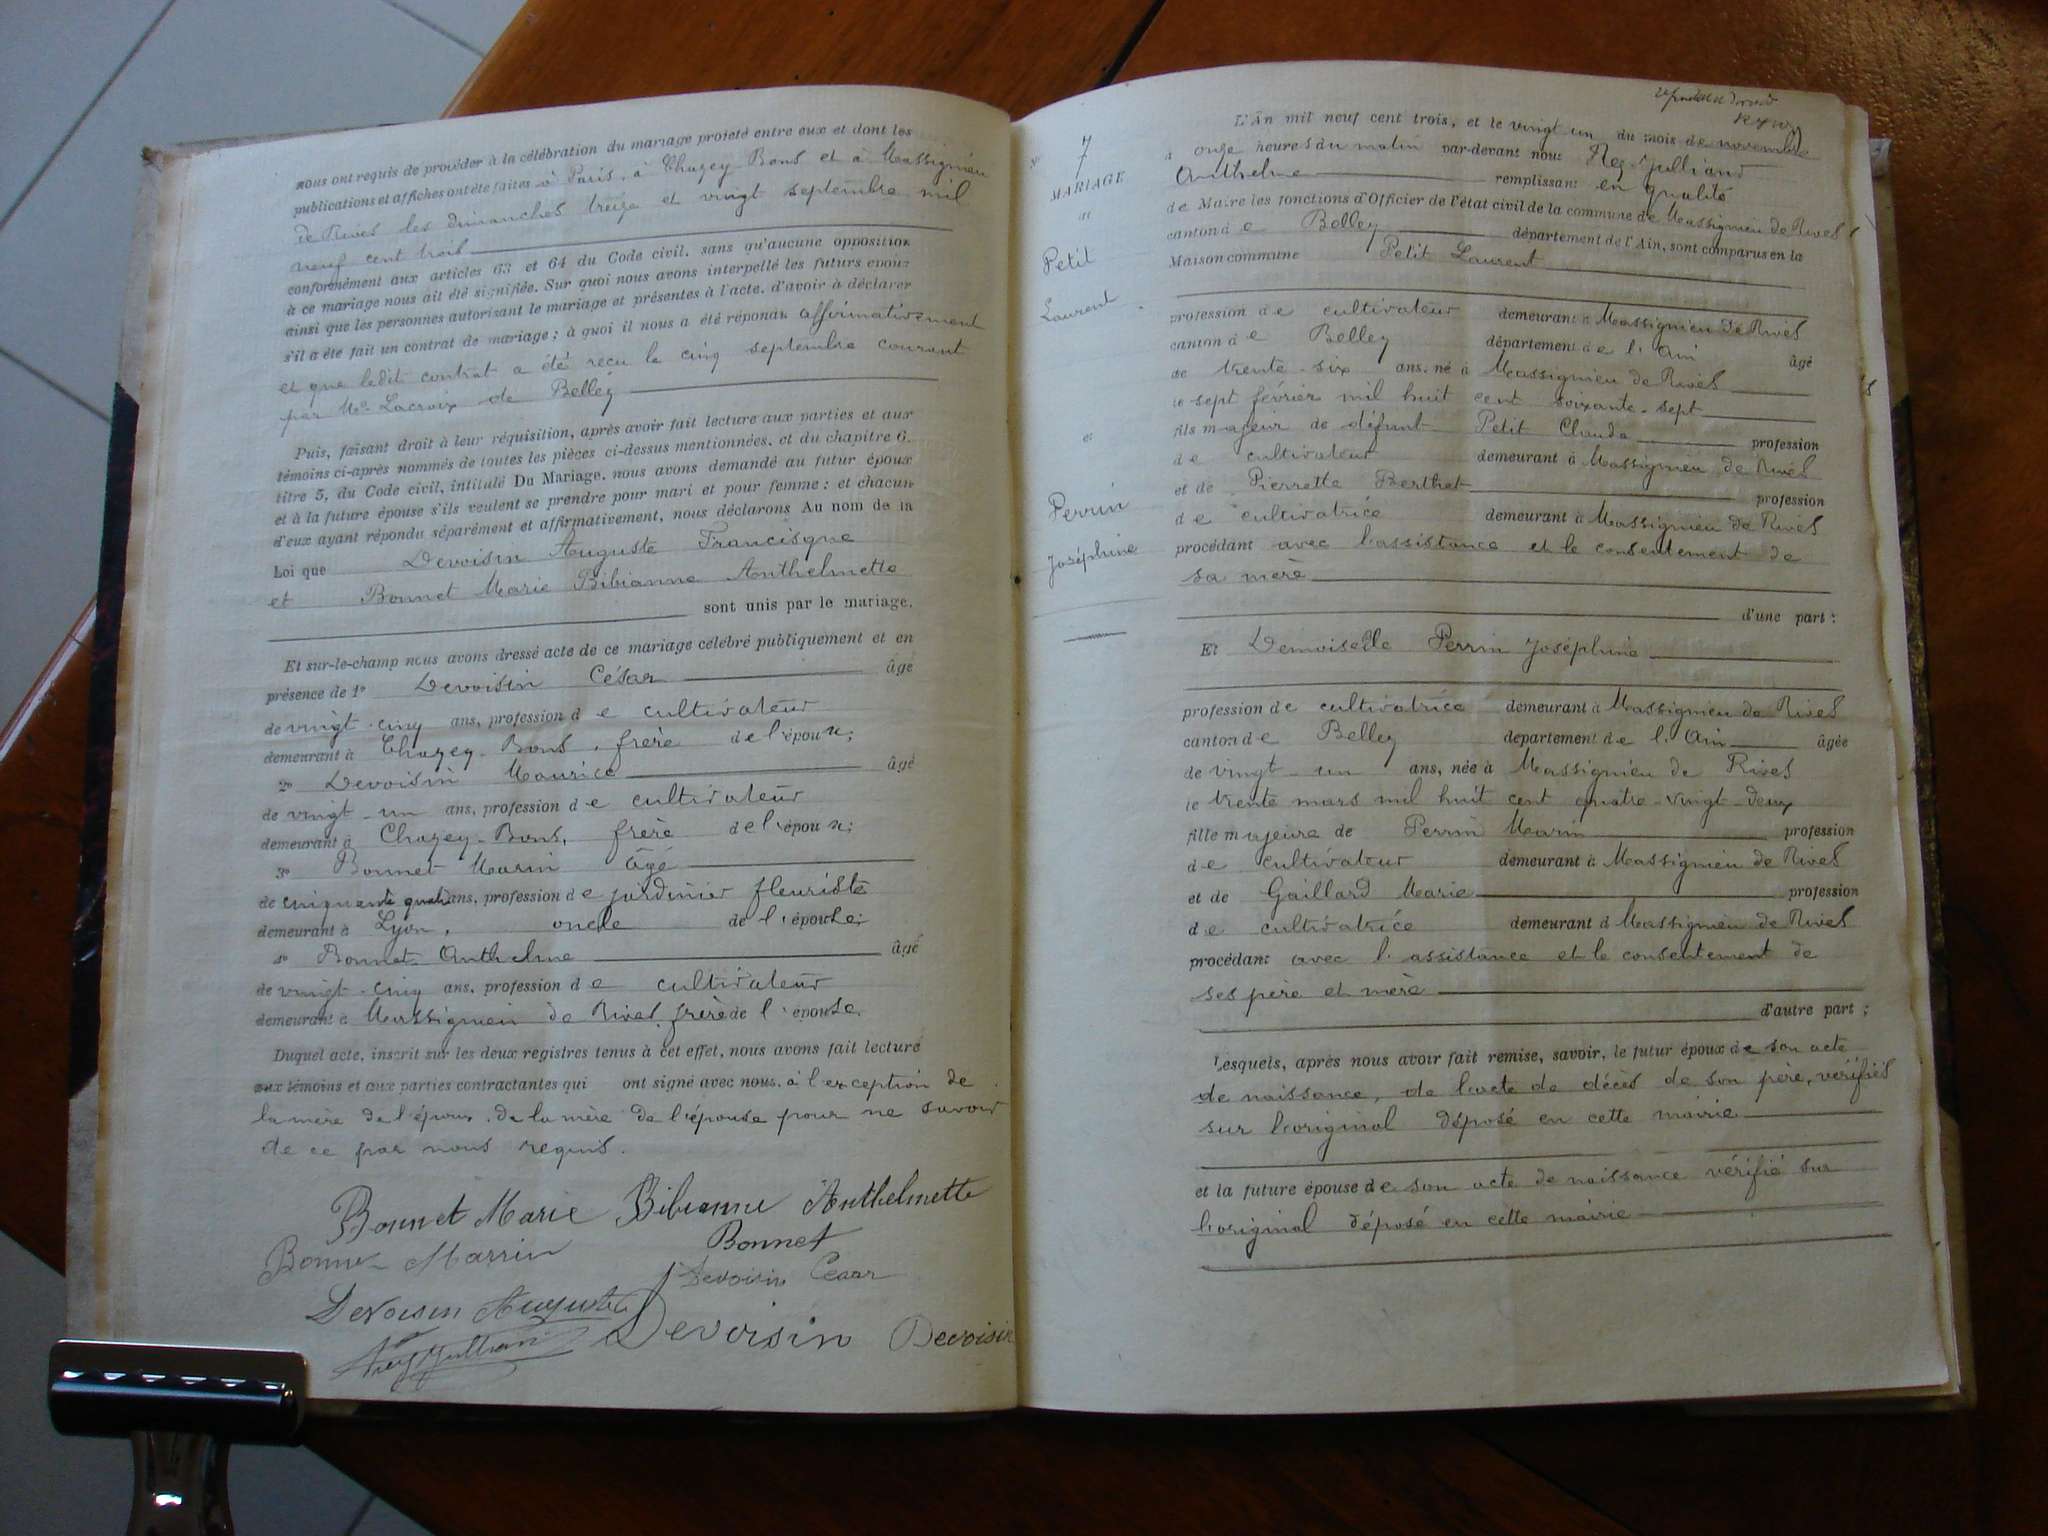 nous ont requis de procéder à la célébration du mariage projeté entre eux et dont les
publications et affiches ont été faites à Paris, à Chazey Bons et à Massignieu
de Rives les dimanches treize et vingt septembre mil
neuf cent trois
conformément aux articles 63 et 64 du Code civil, sans qu'aucune opposition
à ce mariage nous ait été signifiée. Sur quoi nous avons interpellé les futurs époux
ainsi que les personnes autorisant le mariage et présentes à l'acte, d'avoir à déclarer
s'il a été fait un contrat de mariage ; à quoi il nous a été répondu affirmativement
et que ledit contrat a été reçu le cinq septembre courant
par Me Lacroix de Belley
Puis, faisant droit à leur réquisition, après avoir fait lecture aux parties et aux
témoins ci-après nommés de toutes les pièces ci-dessus mentionnées, et du chapitre 6,
titre 5, du Code civil, intitulé Du Mariage, nous avons demandé au futur époux
et à la future épouse s'ils veulent se prendre pour mari et pour femme ; et chacun
d'eux ayant répondu séparément et affirmativement, nous déclarons Au nom de la
Loi que Devoisin Auguste Francisque
et Bonnet Marie Bibianne Anthelmette
sont unis par le mariage.
Et sur-le-champ nous avons dressé acte de ce mariage célébré publiquement et en
présence de 1º Devoisin César âgé
de vingt-cinq ans, profession de cultivateur
demeurant à Chazey-Bons, frère de l'époux ;
2º Devoisin Maurice âgé
de vingt-un ans, profession de cultivateur
demeurant à Chazey-Bons, frère de l'époux ;
3º Bonnet Marin âgé
de cinquante quatre ans, profession de jardinier fleuriste
demeurant à Lyon, oncle de l'épouse ;
4º Bonnet Anthelme âgé
de vingt-cinq ans, profession de cultivateur
demeurant à Massignieu de Rives, frère de l'épouse.
Duquel acte, inscrit sur les deux registres tenus à cet effet, nous avons fait lecture
aux témoins et aux parties contractantes qui ont signé avec nous, à l'exception de
la mère de l'époux, de la mère de l'épouse pour ne savoir
de ce par nous requis.
Bonnet Marie Bibianne Anthelmette
Bonnet Marrin Bonnet
Devoisin Cesar
Devoisin Auguste
Devoisin Devoisin
Ney Julliand
Nº 7
MARIAGE
de
Petit
Laurent
et
Perrin
Joséphine
L'An mil neuf cent trois, et le vingt un du mois de novembre
à onze heures du matin par-devant nous Ney-Julliand
Anthelme remplissant en qualité
de Maire les fonctions d'Officier de l'état civil de la commune de Massignieu de Rives
canton de Belley département de l'Ain, sont comparus en la
Maison commune Petit Laurent
profession de cultivateur demeurant à Massignieu de Rives
canton de Belley département de l'Ain âgé
de trente-six ans, né à Massignieu de Rives
le sept février mil huit cent soixante-sept
fils majeur de défunt Petit Claude profession
de cultivateur demeurant à Massignieu de Rives
et de Pierrette Berthet profession
de cultivatrice demeurant à Massignieu de Rives
procédant avec l'assistance et le consentement de
sa mère
d'une part ;
Et Demoiselle Perrin Joséphine
profession de cultivatrice demeurant à Massignieu de Rives
canton de Belley département de l'Ain âgée
de vingt-un ans, née à Massignieu de Rives
le trente mars mil huit cent quatre-vingt-deux
fille majeure de Perrin Marin profession
de cultivateur demeurant à Massignieu de Rives
et de Gaillard Marie profession
de cultivatrice demeurant à Massignieu de Rives
procédant avec l'assistance et le consentement de
ses père et mère
d'autre part ;
Lesquels, après nous avoir fait remise, savoir, le futur époux de son acte
de naissance, de l'acte de décès de son père, vérifiés
sur l'original déposé en cette mairie
et la future épouse de son acte de naissance vérifié sur
l'original déposé en cette mairie